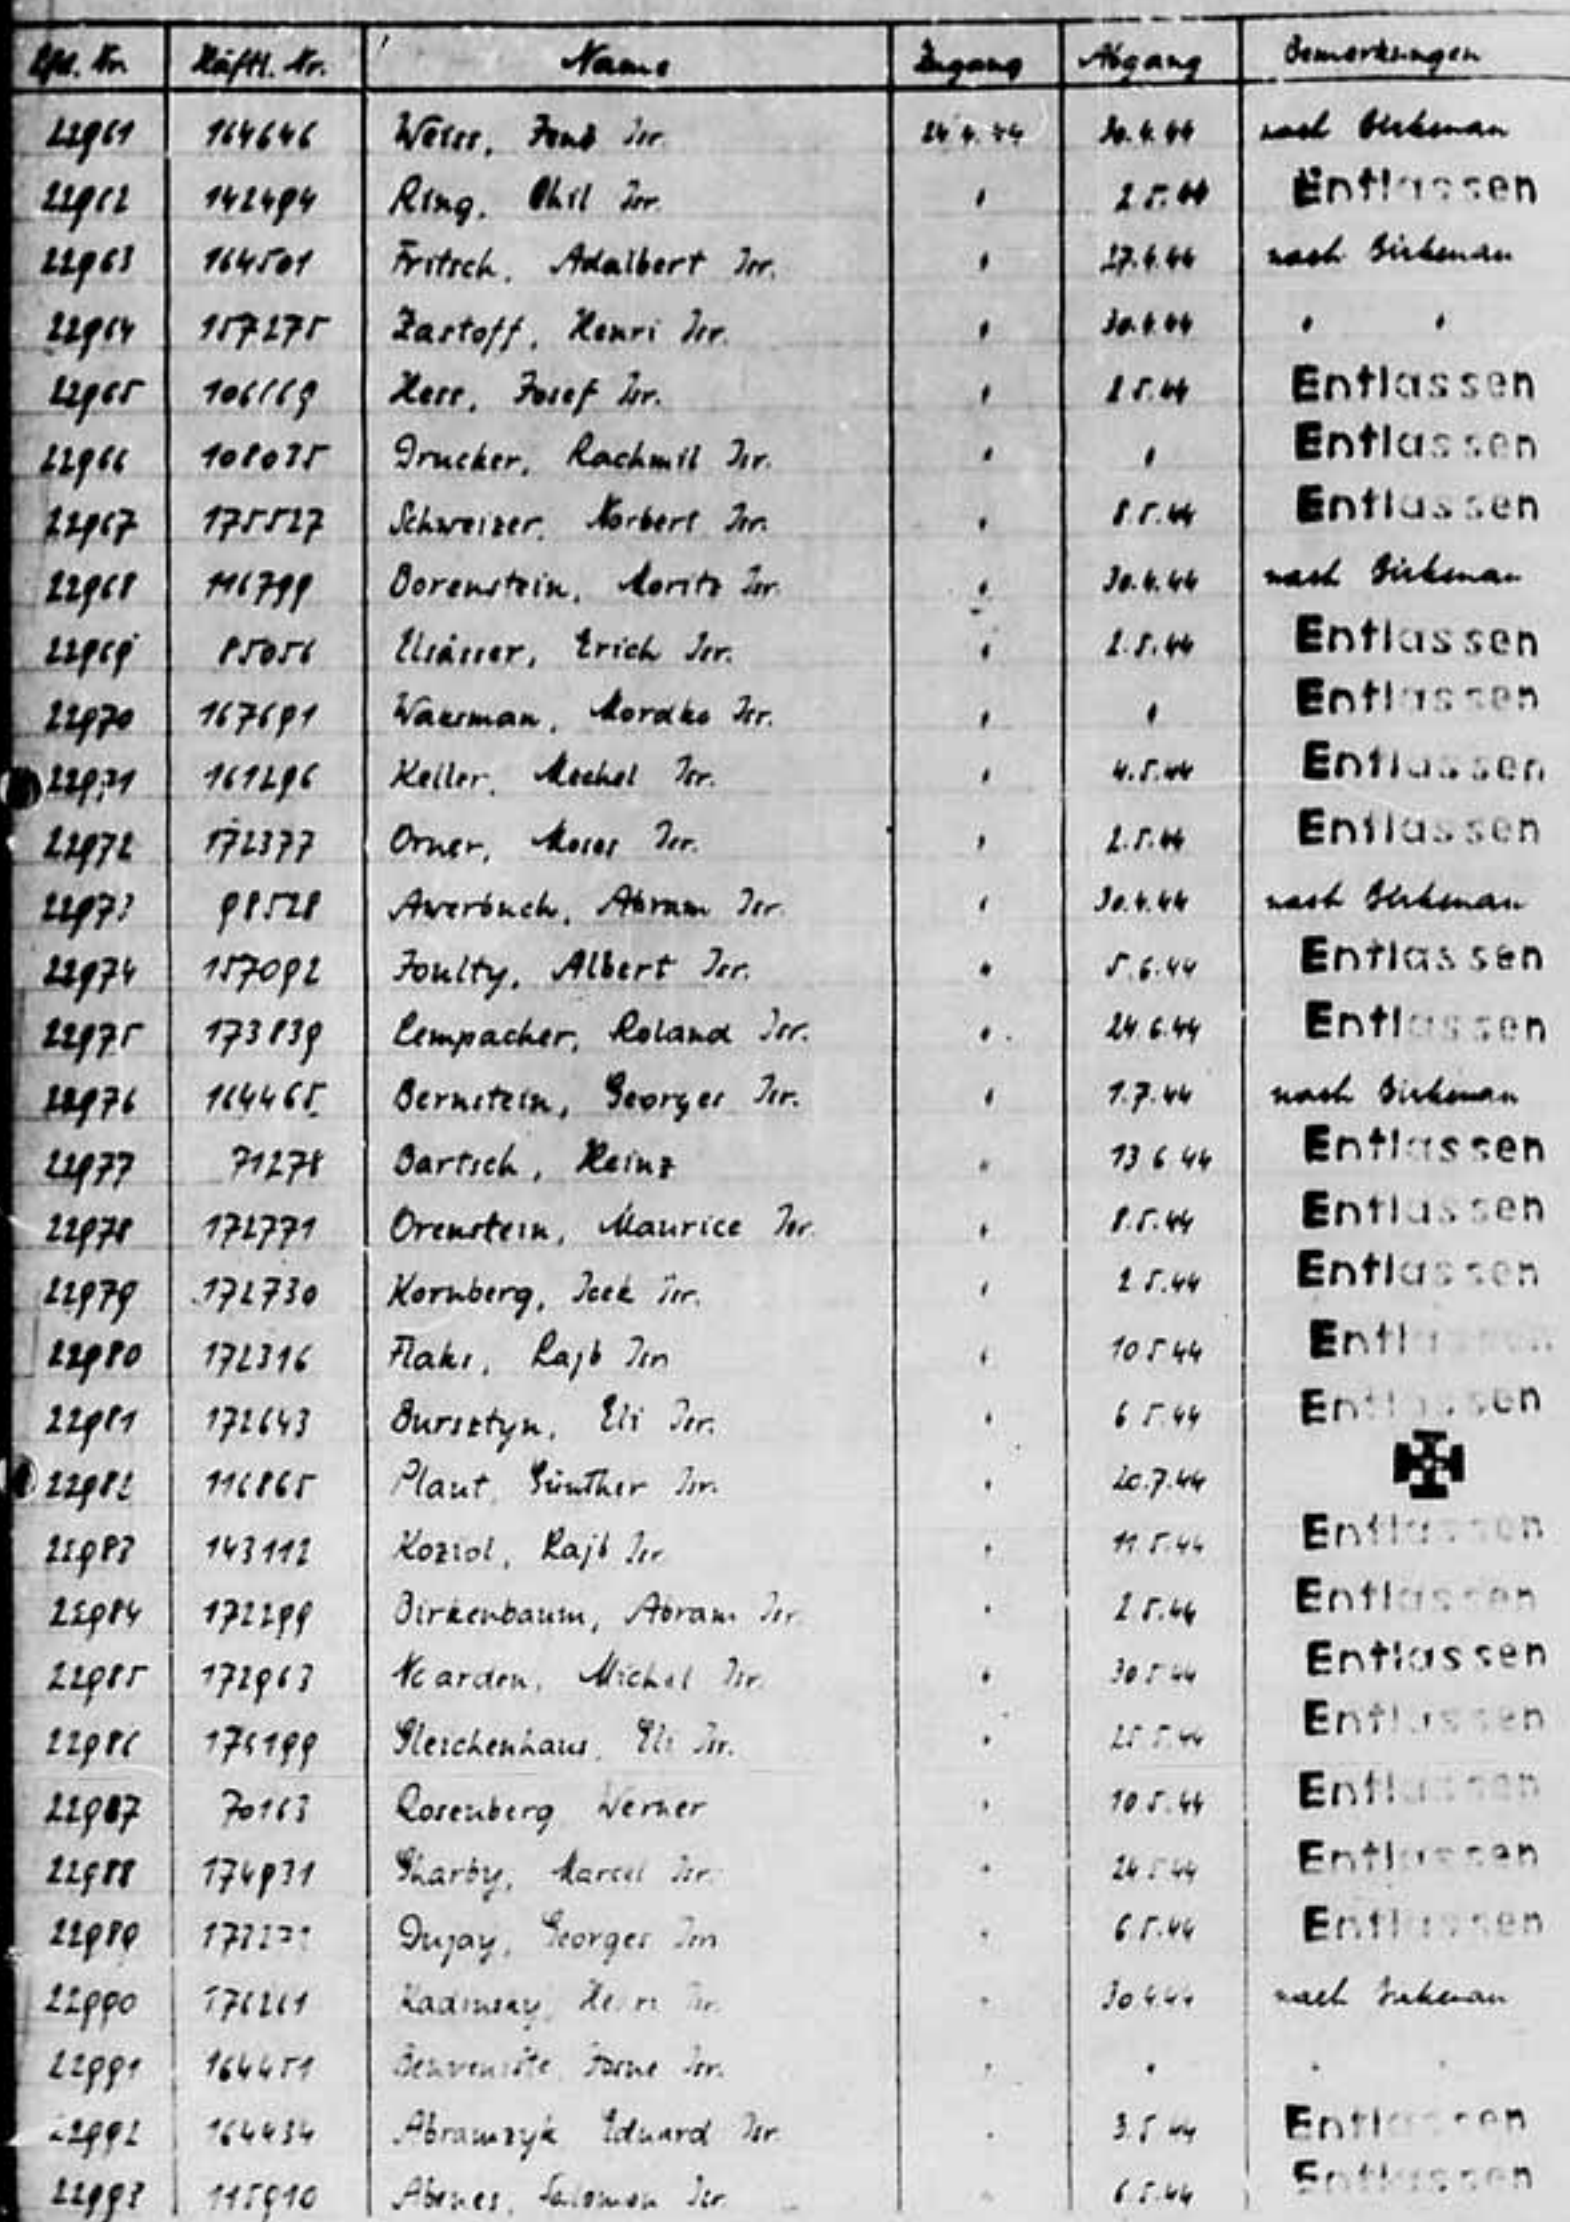 Lfd. Nr. Häftl. Nr. Name Zugang Abgang Bemerkungen
22961 164646 Weiss, Isr. 24.4.44 30.4.44 nach Birkenau
22962 142494 Ring, Chil Isr. " 2.5.44 Entlassen
22963 164501 Fritsch, Adalbert Isr. " 27.4.44 nach Birkenau
22964 157275 Zastoff, Henri Isr. " 30.4.44 " "
22965 106669 Herr, Josef Isr. " 2.5.44 Entlassen
22966 108035 Drucker, Rachmil Isr. " " Entlassen
22967 175527 Schweizer, Norbert Isr. " 8.5.44 Entlassen
22968 116799 Borenstein, Moritz Isr. " 30.4.44 nach Birkenau
22969 85056 Elsässer, Erich Isr. " 2.5.44 Entlassen
22970 167691 Waksman, Mordko Isr. " " Entlassen
22971 161296 Keller, Mechel Isr. " 4.5.44 Entlassen
22972 172377 Orner, Moses Isr. " 2.5.44 Entlassen
22973 98528 Awerbuch, Abram Isr. " 30.4.44 nach Birkenau
22974 157092 Foulty, Albert Isr. " 5.6.44 Entlassen
22975 173839 Lempacher, Roland Isr. " 24.6.44 Entlassen
22976 164465 Bernstein, Georges Isr. " 1.7.44 nach Birkenau
22977 71278 Bartsch, Heinz " 13.6.44 Entlassen
22978 172771 Orenstein, Maurice Isr. " 8.5.44 Entlassen
22979 172730 Kornberg, Icek Isr. " 2.5.44 Entlassen
22980 172316 Flaks, Lajb Isr. " 10.5.44 Entlassen
22981 172643 Bursztyn, Eli Isr. " 6.5.44 Entlassen
22982 116865 Plaut, Günther Isr. " 20.7.44
22983 143112 Koziol, Lajb Isr. " 11.5.44 Entlassen
22984 172299 Birkenbaum, Abram Isr. " 2.5.44 Entlassen
22985 172963 Narden, Michel Isr. " 30.5.44 Entlassen
22986 176199 Gleichenhaus, Eli Isr. " 25.5.44 Entlassen
22987 70163 Rosenberg Werner " 10.5.44 Entlassen
22988 174931 Gharby, Marcel Isr. " 24.5.44 Entlassen
22989 Dujay, Georges Isr. " 6.5.44 Entlassen
22990 176261 Kadinsky, Henri Isr. " 30.4.44 nach Birkenau
22991 164451 Benveniste Isr. " " " "
22992 164434 Abramzyk Eduard Isr. " 3.5.44 Entlassen
22993 115910 Abenes, Salomon Isr. " 6.5.44 Entlassen